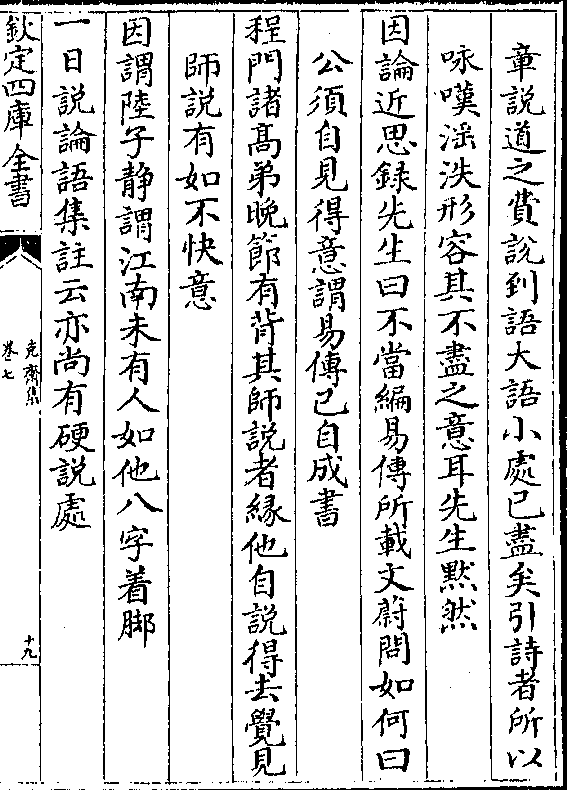 章説道之費説到語大語小處已盡矣引詩者所以
咏嘆滛泆形容其不盡之意耳先生黙然
因論近思録先生曰不當編易傳所載文蔚問如何曰
公須自見得意謂易傳已自成書
程門諸髙弟晩節有背其師説者縁他自説得去覺見
師説有如不快意
因謂陸子静謂江南未有人如他八字着脚
一日説論語集註云亦尚有硬説處
欽定四庫全書
克齋集
卷七
十九